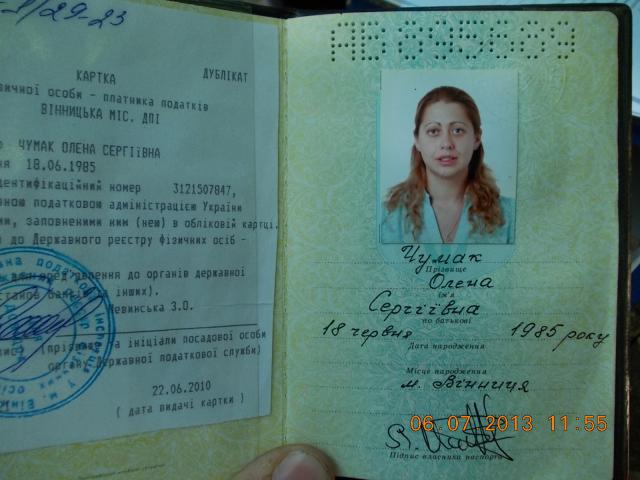 КАРТКА ДУБЛІКАТ
ичної особи - платника податків
ВІННИЦЬКА МІС. ДПІ
ЧУМАК ОЛЕНА СЕРГІЇВНА
ня 18.06.1985
дентифікаційний номер 3121507847,
вною податковою адміністрацією України
ми, заповненими ним (нею) в обліковій картці.
до Державного реєстру фізичних осіб -
до органів державної
інших).
Левинська З.О.
та ініціали посадової особи
органу державної податкової служби)
22.06.2010
( дата видачі картки )
Чумак
Прізвище
Олена
Ім'я
Сергіївна
по батькові
18 червня 1985 року
Дата народження
Місце народження
м. Вінниця
06.07.2013 11:55
Підпис власника паспорта